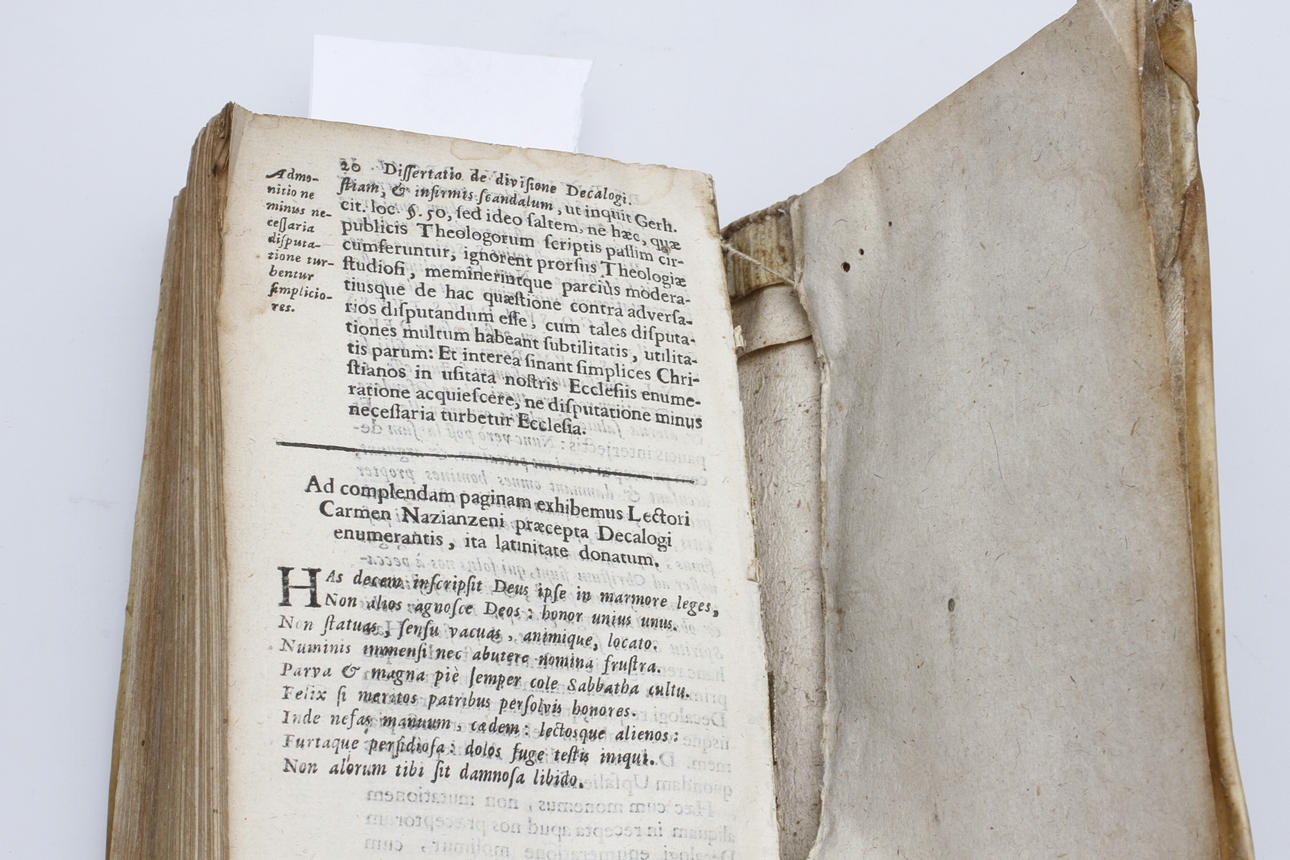 20 Dissertatio de divisione Decalogi.
Admo-
nitio ne
minùs ne-
cessaria
disputa-
tione tur-
bentur
simplicio-
res.
stiam, & infirmis scandalum, ut inquit Gerh.
cit. loc. §. 50, sed ideo saltem, ne hæc, quæ
publicis Theologorum scriptis passim cir-
cumferuntur, ignorent prorsus Theologiæ
studiosi, meminerintque parciùs modera-
tiusque de hac quæstione contra adversa-
rios disputandum esse, cum tales disputa-
tiones multum habeant subtilitatis, utilita-
tis parum: Et interea sinant simplices Chri-
stianos in usitata nostris Ecclesiis enume-
ratione acquiescere, ne disputatione minus
necessaria turbetur Ecclesia.
Ad complendam paginam exhibemus Lectori
Carmen Nazianzeni præcepta Decalogi
enumerantis, ita latinitate donatum.
HAs decem inscripsit Deus ipse in marmore leges,
Non alios agnosce Deos: honor unius unus.
Non statuas, sensu vacuas, animique, locato.
Numinis immensi nec abutere nomina frustra.
Parva & magna piè semper cole Sabbatha cultu.
Felix si meritos patribus persolvis honores.
Inde nefas manuum, cædem: lectosque alienos:
Furtaque perfidiosa: dolos fuge testis iniqui.
Non alorum tibi sit damnosa libido.